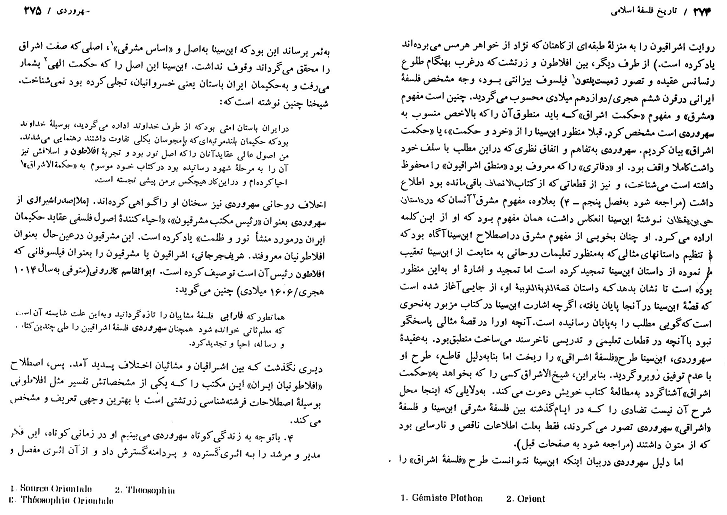 ۲۷۴ / تاریخ فلسفهٔ اسلامی
روایت اشراقیون را به منزلهٔ طبقه‌ای از کاهنان که نژاد از خواهر هرمس می‌برده‌اند
یاد کرده است.) از طرف دیگر، بین افلاطون و زرتشت که در غرب بهنگام طلوع
رنسانس عقیده و تصور ژمیست پلتون۱ فیلسوف بیزانتی بود، وجه مشخص فلسفهٔ
ایرانی در قرن ششم هجری/دوازدهم میلادی محسوب می‌گردید. چنین است مفهوم
«مشرق» و مفهوم «حکمت اشراق» که باید منطوق آن را که بالاخص منسوب به
سهروردی است مشخص کرد. قبلا منظور ابن‌سینا را از «خرد و حکمت»، یا «حکمت
اشراق» بیان کردیم. سهروردی به‌تفاهم و اتفاق نظری که در این مطلب با سلف خود
داشت کاملا واقف بود. او «دفاتری» را که معروف بود «منطق اشراقیون» را محفوظ
داشته است می‌شناخت، و نیز از قطعاتی که از کتاب الانصاف باقی‌مانده بود اطلاع
داشت (مراجعه شود به‌فصل پنجم ــ ۴) بعلاوه، مفهوم مشرق۲ آنسان که در داستان
حی‌بن‌یقظان نوشتهٔ ابن‌سینا انعکاس داشت، همان مفهوم بود که او از این کلمه
اراده می‌کرد. او چنان بخوبی از مفهوم مشرق در اصطلاح ابن‌سینا آگاه بود که
تنظیم داستانهای مثالی که به‌منظور تعلیمات روحانی به متابعت از ابن‌سینا تعقیب
نموده از داستان ابن‌سینا تمجید کرده است اما تمجید و اشارهٔ او به‌این منظور
بوده است تا نشان بدهد که داستان قصةالغربةالغربیه او، از جایی آغاز شده است
که قصهٔ ابن‌سینا در آنجا پایان یافته، اگرچه اشارت ابن‌سینا در کتاب مزبور به‌نحوی
است که گویی مطلب را به‌پایان رسانیده است. آنچه او را در قصهٔ مثالی پاسخگو
نبود با آنچه در قطعات تعلیمی و تدریسی ناخرسند می‌ساخت منطبق بود. به‌عقیدهٔ
سهروردی، ابن‌سینا طرح «فلسفهٔ اشراقی» را ریخت اما بنابه‌دلیل قاطع، طرح او
با عدم توفیق روبرو گردید. بنابراین، شیخ‌الاشراق کسی را که بخواهد به«حکمت
اشراق» آشنا گردد به‌مطالعهٔ کتاب خویش دعوت می‌کند. به‌دلایلی که اینجا محل
شرح آن نیست تضادی را که در ایام گذشته بین فلسفهٔ مشرقی ابن‌سینا و فلسفهٔ
«اشراقی» سهروردی تصور می‌کردند، فقط بعلت اطلاعات ناقص و نارسایی بود
که از متون داشتند (مراجعه شود به صفحات قبل).
اما دلیل سهروردی در بیان اینکه ابن‌سینا نتوانست طرح «فلسفهٔ اشراق» را
1. Gémiste Plethon 2. Orient
سهروردی / ۲۷۵
به‌ثمر برساند این بود که ابن‌سینا به‌اصل و «اساس مشرقی»۱، اصلی که صفت اشراق
را محقق می‌گرداند وقوف نداشت. ابن‌سینا این اصل را که حکمت الهی۲ بشمار
می‌رفت و به‌حکیمان ایران باستان یعنی خسروانیان، تجلی کرده بود نمی‌شناخت.
شیخنا چنین نوشته است که:
در ایران باستان امتی بود که از طرف خداوند اداره می‌گردید، بوسیلهٔ خداوند
بود که حکیمان بلندمرتبه‌ای که بامجوسان بکلی تفاوت داشتند رهنمایی می‌شدند.
من اصول عالی عقاید آنان را که اصل نور بود و تجربهٔ افلاطون و اسلافش نیز
آن را به مرحلهٔ شهود رسانیده بود در کتاب خود موسوم به «حکمةالاشراق»۳
احیا کرده‌ام و در این کار هیچکس بر من پیشی نجسته است.
اخلاف روحانی سهروردی نیز سخنان او را گواهی کرده‌اند. [ملا]صدرا شیرازی از
سهروردی بعنوان «رئیس مکتب مشرقیون»، «احیاء کنندهٔ اصول فلسفی عقاید حکیمان
ایران در مورد منشأ نور و ظلمت» یاد کرده است. این مشرقیون در عین‌حال بعنوان
افلاطونیان معروفند. شریف جرجانی، اشراقیون یا مشرقیون را بعنوان فیلسوفانی که
افلاطون رئیس آن است توصیف کرده است. ابوالقاسم کازرونی(متوفی به‌سال ۱۰۱۴
هجری/۱۶۰۶ میلادی) چنین می‌گوید:
همانطور که فارابی فلسفهٔ مشاییان را تازه گردانید و به‌این علت شایسته آن است
که معلم ثانی خوانده شود همچنان سهروردی فلسفهٔ اشراقیین را طی چندین کتاب
و رساله، احیا و تجدید کرد.
دیری نگذشت که بین اشراقیان و مشائیان اختلاف پدید آمد. پس، اصطلاح
«افلاطونیان ایران» این مکتب را که یکی از مشخصاتش تفسیر مثل افلاطونی
بوسیلهٔ اصطلاحات فرشته‌شناسی زرتشتی است با بهترین وجهی تعریف و مشخص
می‌کند.
۴. باتوجه به زندگی کوتاه سهروردی می‌بینیم او در زمانی کوتاه، این فکر
مدیر و مرشد را به اثری گسترده و پردامنه گسترش داد و از آن اثری مفصل و
1. Source Orientale 2. Theosophia
3. Théosophie Orientale